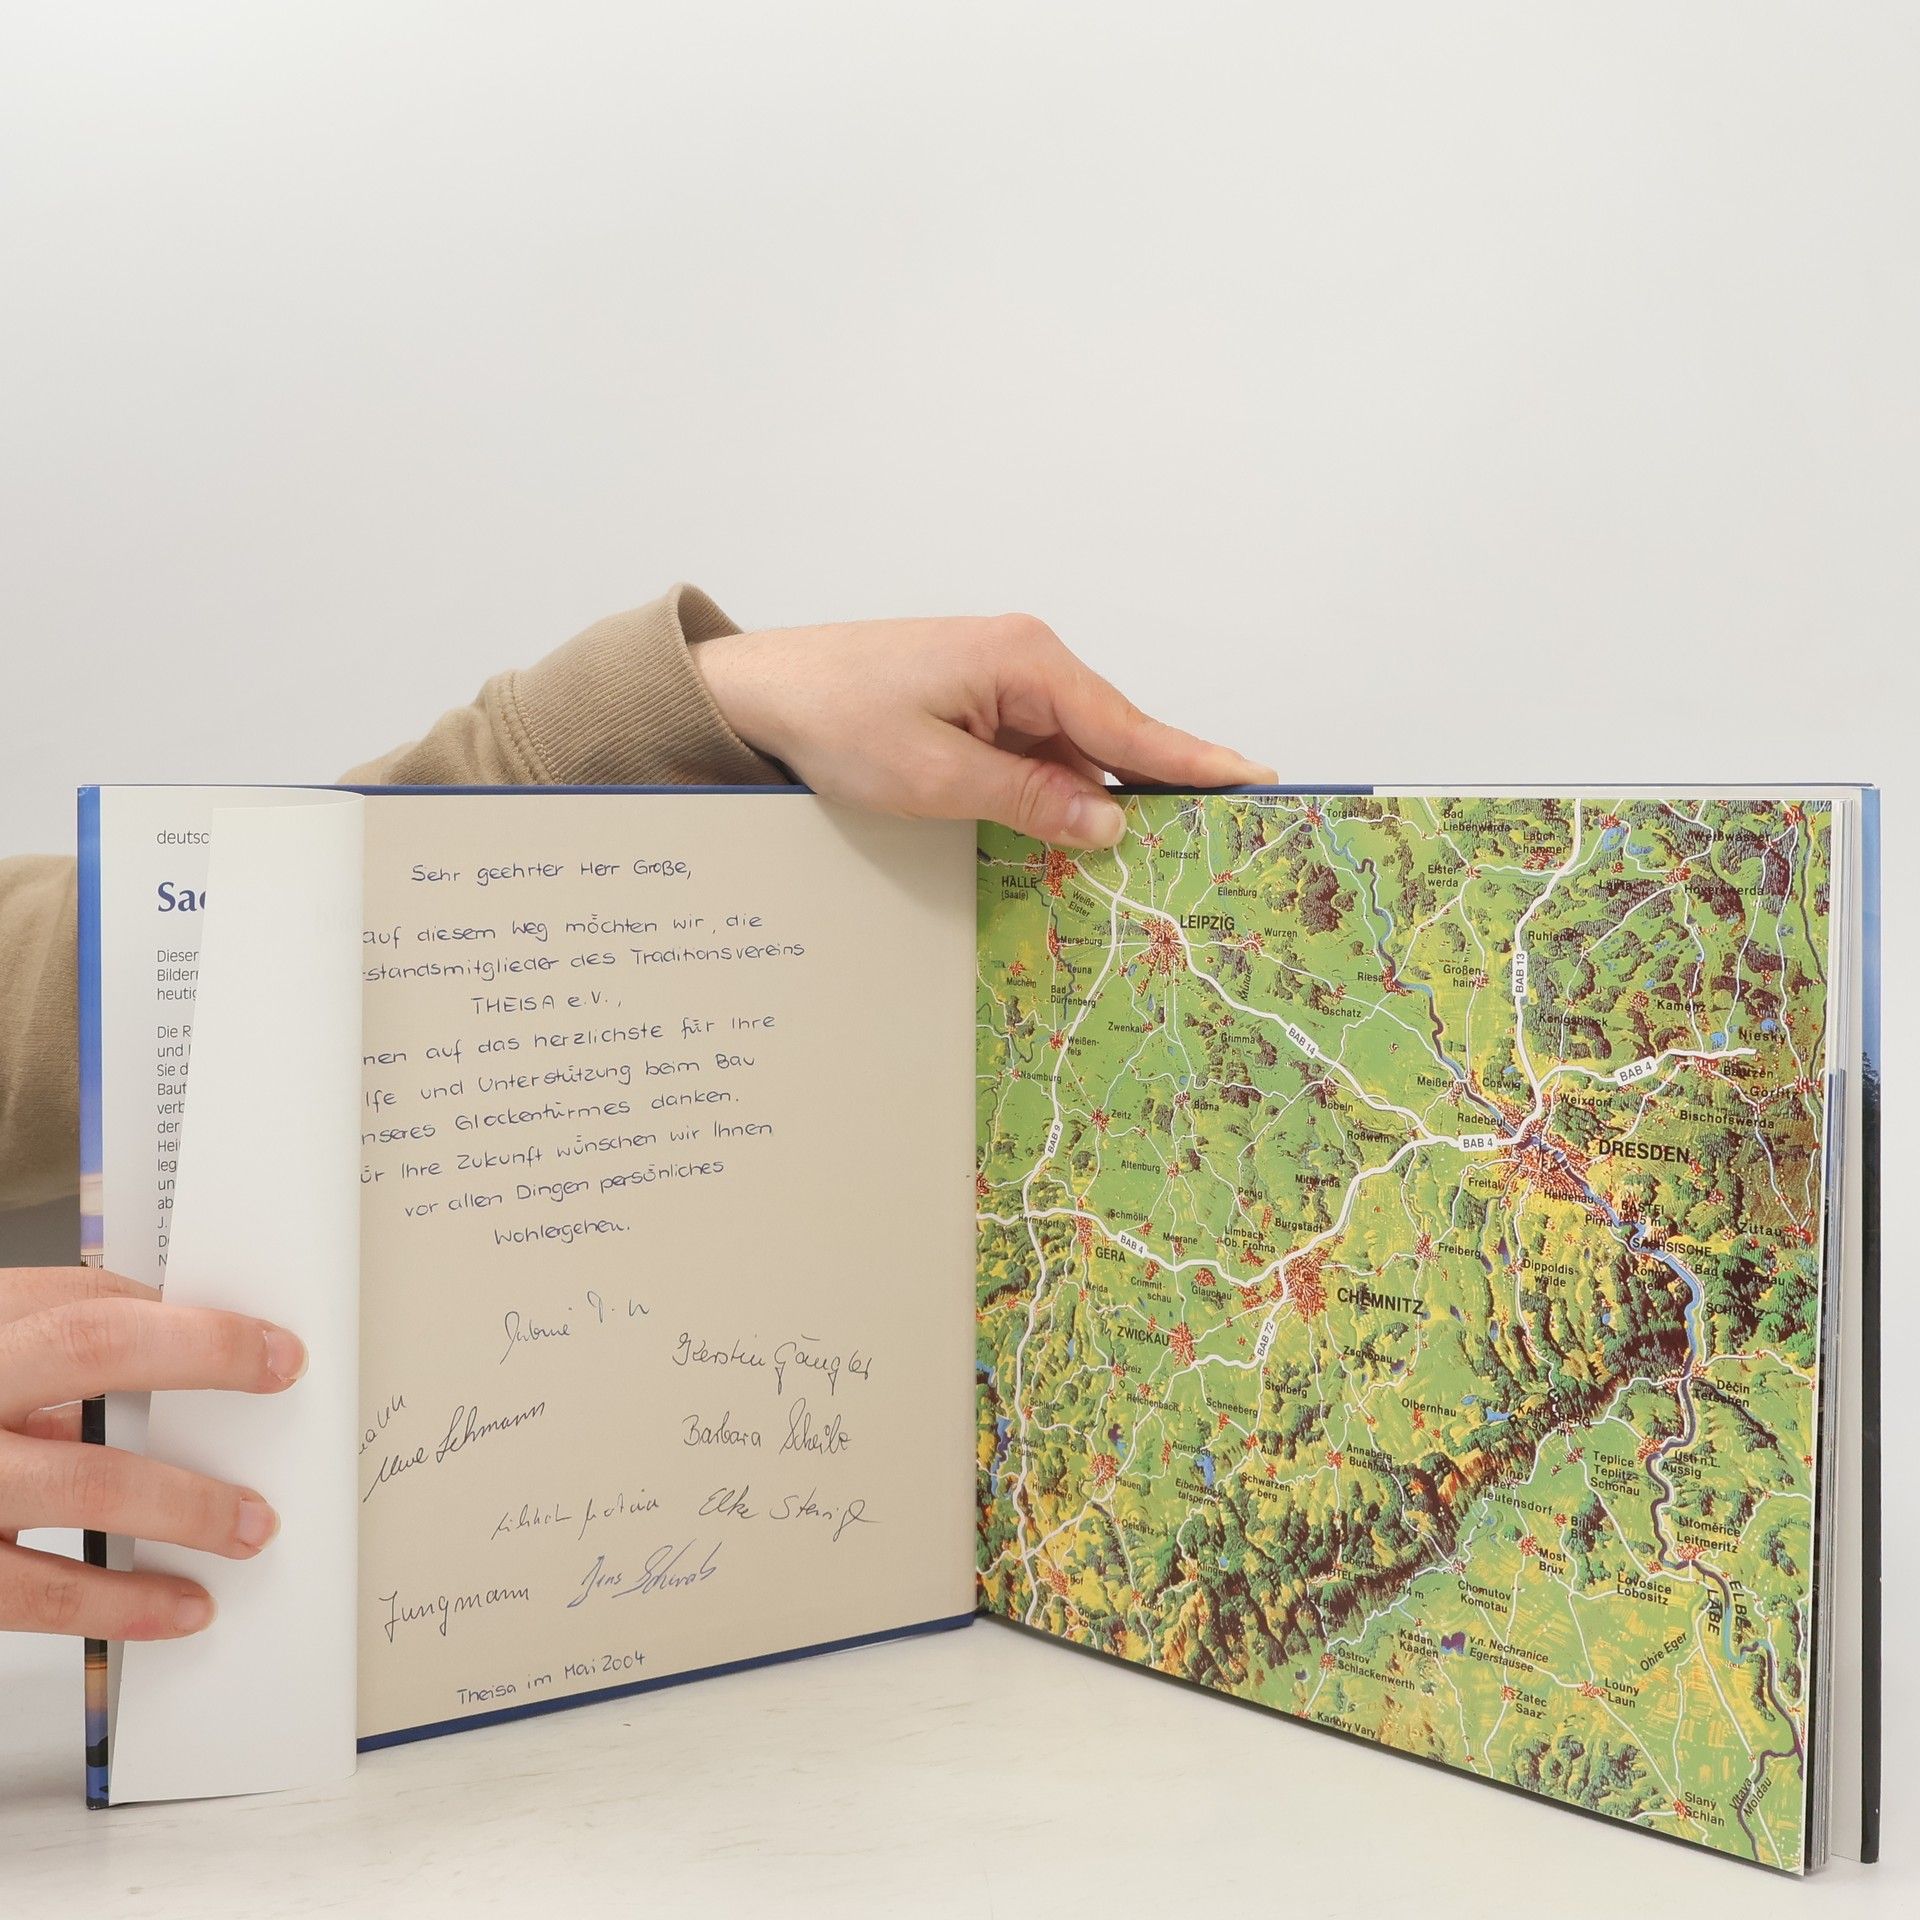 deutsc
Sac
Dieser
Bilder
heutig
Die R
und
Sie d
Baut
verb
der
Hei
leg
un
ab
J.
D
N
Sehr geehrter Herr Große,
auf diesem Weg möchten wir, die
standsmitglieder des Traditionsvereins
THEISA e.V.,
nen auf das herzlichste für Ihre
lfe und Unterstützung beim Bau
nseres Glockentürmes danken.
ür Ihre Zukunft wünschen wir Ihnen
vor allen Dingen persönliches
Wohlergehen.
Kerstin Gängler
Uwe Lehmann
Barbara Scheibe
Elke
Jungmann
Jens Schwab
Theisa im Mai 2004
Torgau
Bad
Liebenwerda
Lauch
hammer
Weißwasser
Delitzsch
HALLE
(Saale)
Eilenburg
Elster-
werda
Hoyerswerda
Weiße
Elster
LEIPZIG
Wurzen
Merseburg
Ruhland
Leuna
Mücheln
Bad
Dürrenberg
Riesa
Großen-
hain
BAB 13
Kamenz
Oschatz
Königsbrück
Zwenkau
Grimma
BAB 14
Niesky
Weißen-
fels
BAB 4
Bautzen
Naumburg
Meißen
Coswig
Görlitz
Zeitz
Borna
Döbeln
Radebeul
Weixdorf
Bischofswerda
BAB 9
Roßwein
BAB 4
DRESDEN
Altenburg
Mittweida
Freital
Heidenau
Penig
BASTEI
Pirna
Hermsdorf
Schmölln
Burgstädt
Zittau
BAB 4
Meerane
Limbach
Ob. Frohna
Freiberg
SÄCHSISCHE
GERA
Dippoldis-
walde
Weida
Crimmit-
schau
Glauchau
CHEMNITZ
ZWICKAU
BAB 72
Zschopau
Greiz
Reichenbach
Stollberg
Děčín
Tetschen
Schneeberg
Olbernhau
Auerbach
Aue
Annaberg-
Buchholz
Teplice
Teplitz-
Schönau
Ústí n.L.
Aussig
Plauen
Eibenstock
talsperre
Schwarzen-
berg
leutensdorf
Oelsnitz
Bilina
Litoměřice
Leitmeritz
Most
Brüx
Hof
Lovosice
Lobositz
Chomutov
Komotau
ELBE
LABE
Kadan
Kaaden
v.n. Nechranice
Egerstausee
Ohre Eger
Ostrov
Schlackenwerth
Louny
Laun
Zatec
Saaz
Karlovy Vary
Slaný
Schlan
Vltava
Moldau